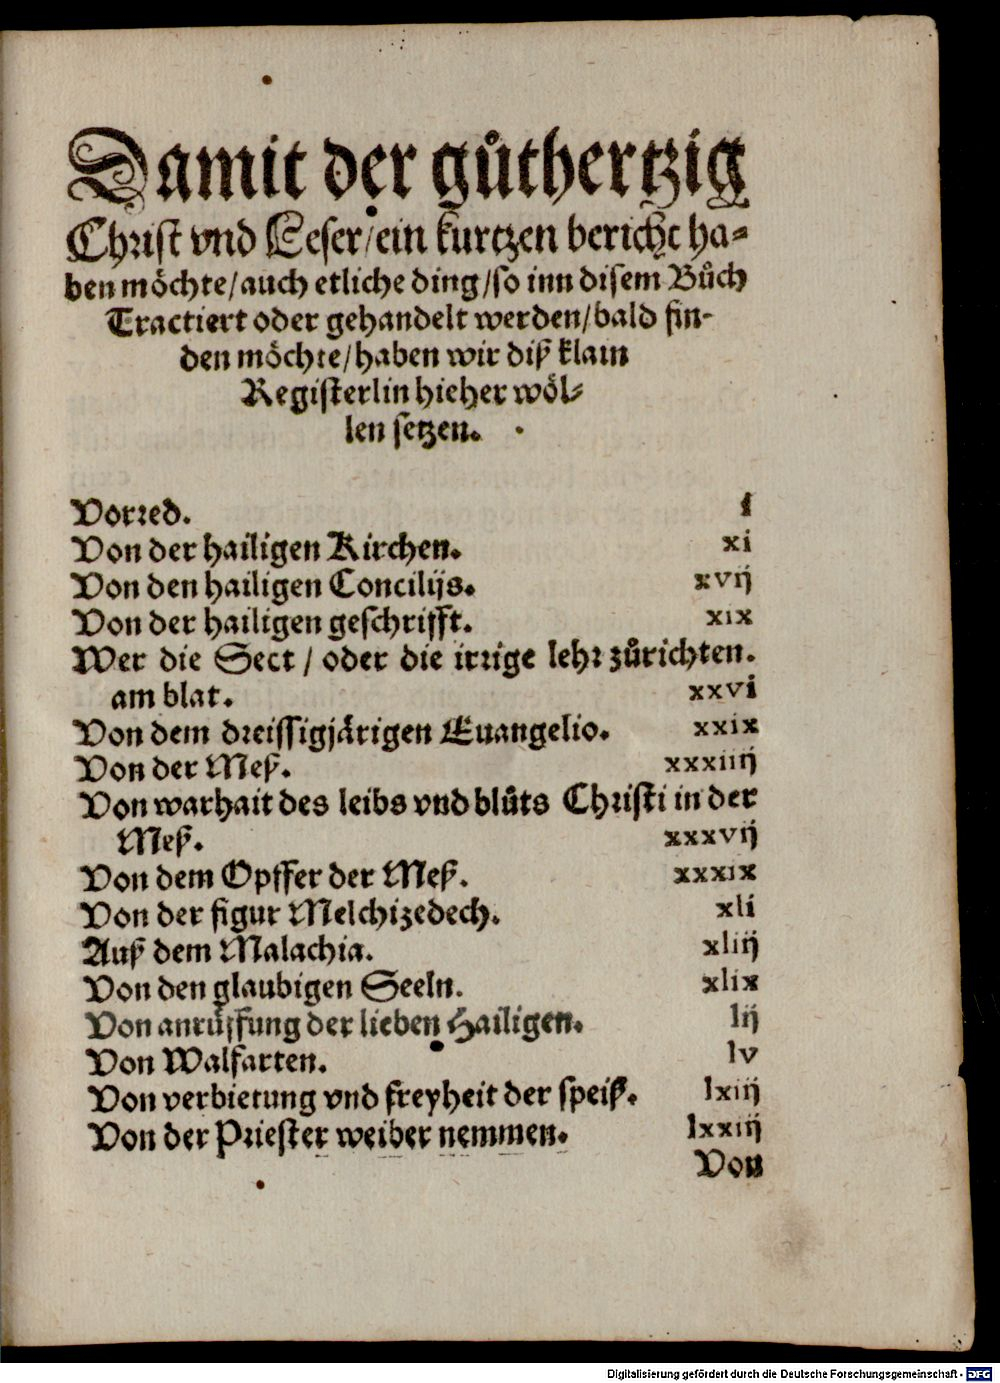 Damit der gůthertzig
Christ vnd Leser/ein kurtzen bericht ha⸗
ben möchte/auch etliche ding/so inn disem Bůch
Tractiert oder gehandelt werden/bald fin-
den möchte/haben wir diß klain
Registerlin hieher wöl⸗
len setzen.
Vorred. i
Von der hailigen Kirchen. xi
Von den hailigen Concilijs. xvij
Von der hailigen geschrifft. xix
Wer die Sect / oder die irrige lehr zůrichten.
am blat. xxvi
Von dem dreissigjärigen Euangelio. xxix
Von der Meß. xxxiiij
Von warhait des leibs vnd blůts Christi in der
Meß. xxxvij
Von dem Opffer der Meß. xxxix
Von der figur Melchizedech. xli
Auß dem Malachia. xliij
Von den glaubigen Seeln. xlix
Von anrůffung der lieben Hailigen. lij
Von Walfarten. lv
Von verbietung vnd freyheit der speiß. lxiij
Von der Priester weiber nemmen. lxxiij
Von
Digitalisierung gefördert durch die Deutsche Forschungsgemeinschaft - DFG